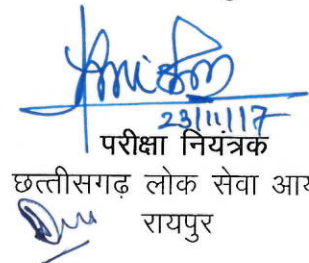 23/11/17
परीक्षा नियंत्रक
छत्तीसगढ़ लोक सेवा आय
रायपुर